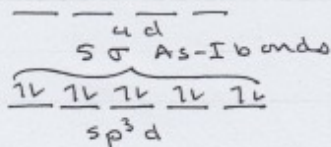 4d
5 σ As-I bonds
1L 1L 1L 1L 1L
sp³d